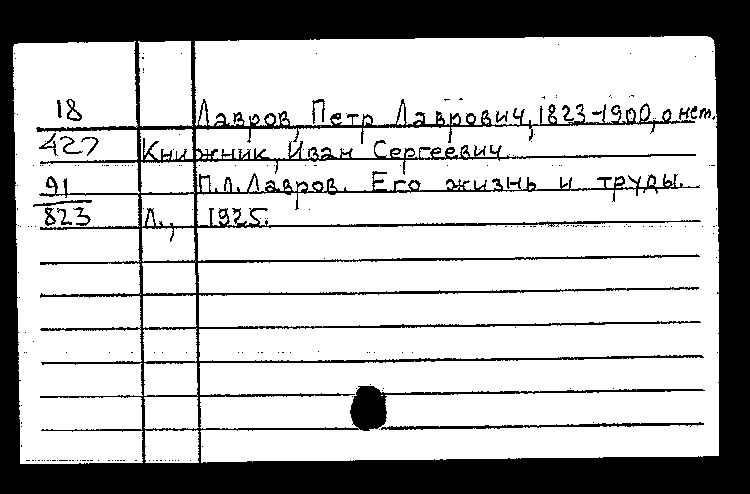 18 Лавров, Петр Лаврович, 1823-1900, о нем.
427 Книжник, Иван Сергеевич
91 П.Л. Лавров. Его жизнь и труды.
823 Л., 1925.